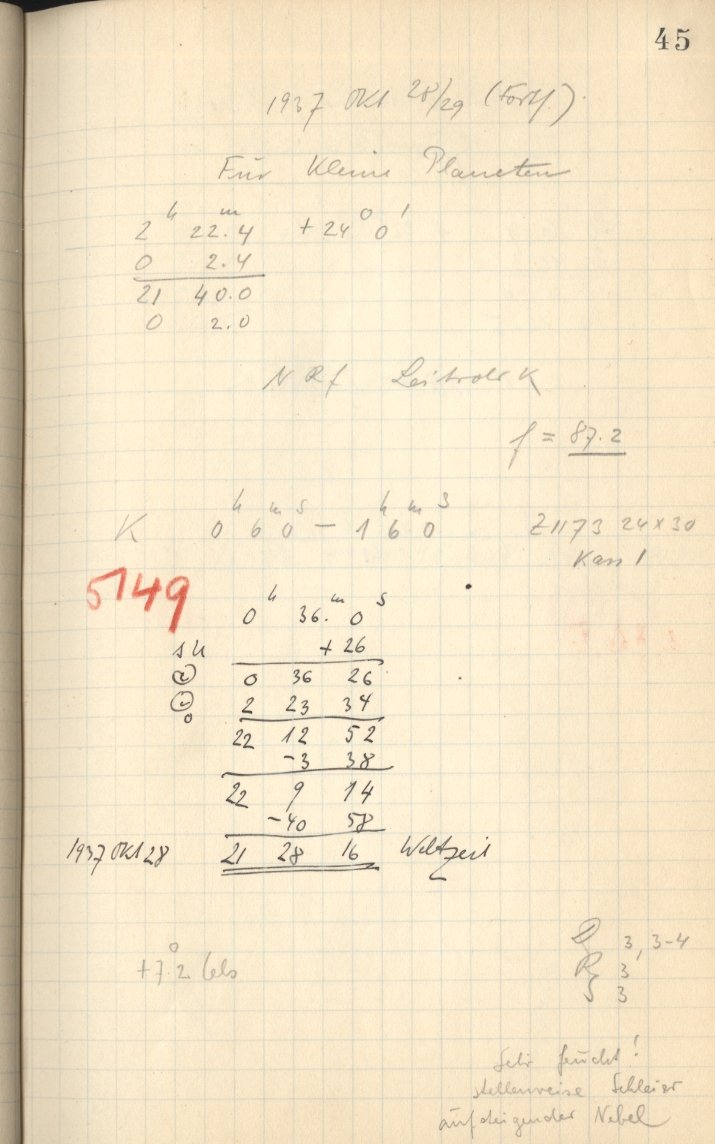 45
1937 Okt 28/29 (Forts.)
Für Kleine Planeten
2h 22.m4 +24° 0'
0 2.4
21 40.0
0 2.0
N Rf Leitrohr K
f = 87.2
K 0h 6m 0s – 1h 6m 0s Z1173 24x30
Kass 1
5149
0h 36.m 0s
+ 26
0 36 26
2 23 34
22 12 52
-3 38
22 9 14
-40 58
1937 Okt 28 21 28 16 Weltzeit
+7.°2 Cels
3, 3-4
R 3
S 3
Sehr feucht!
stellenweise Schleier
aufsteigender Nebel